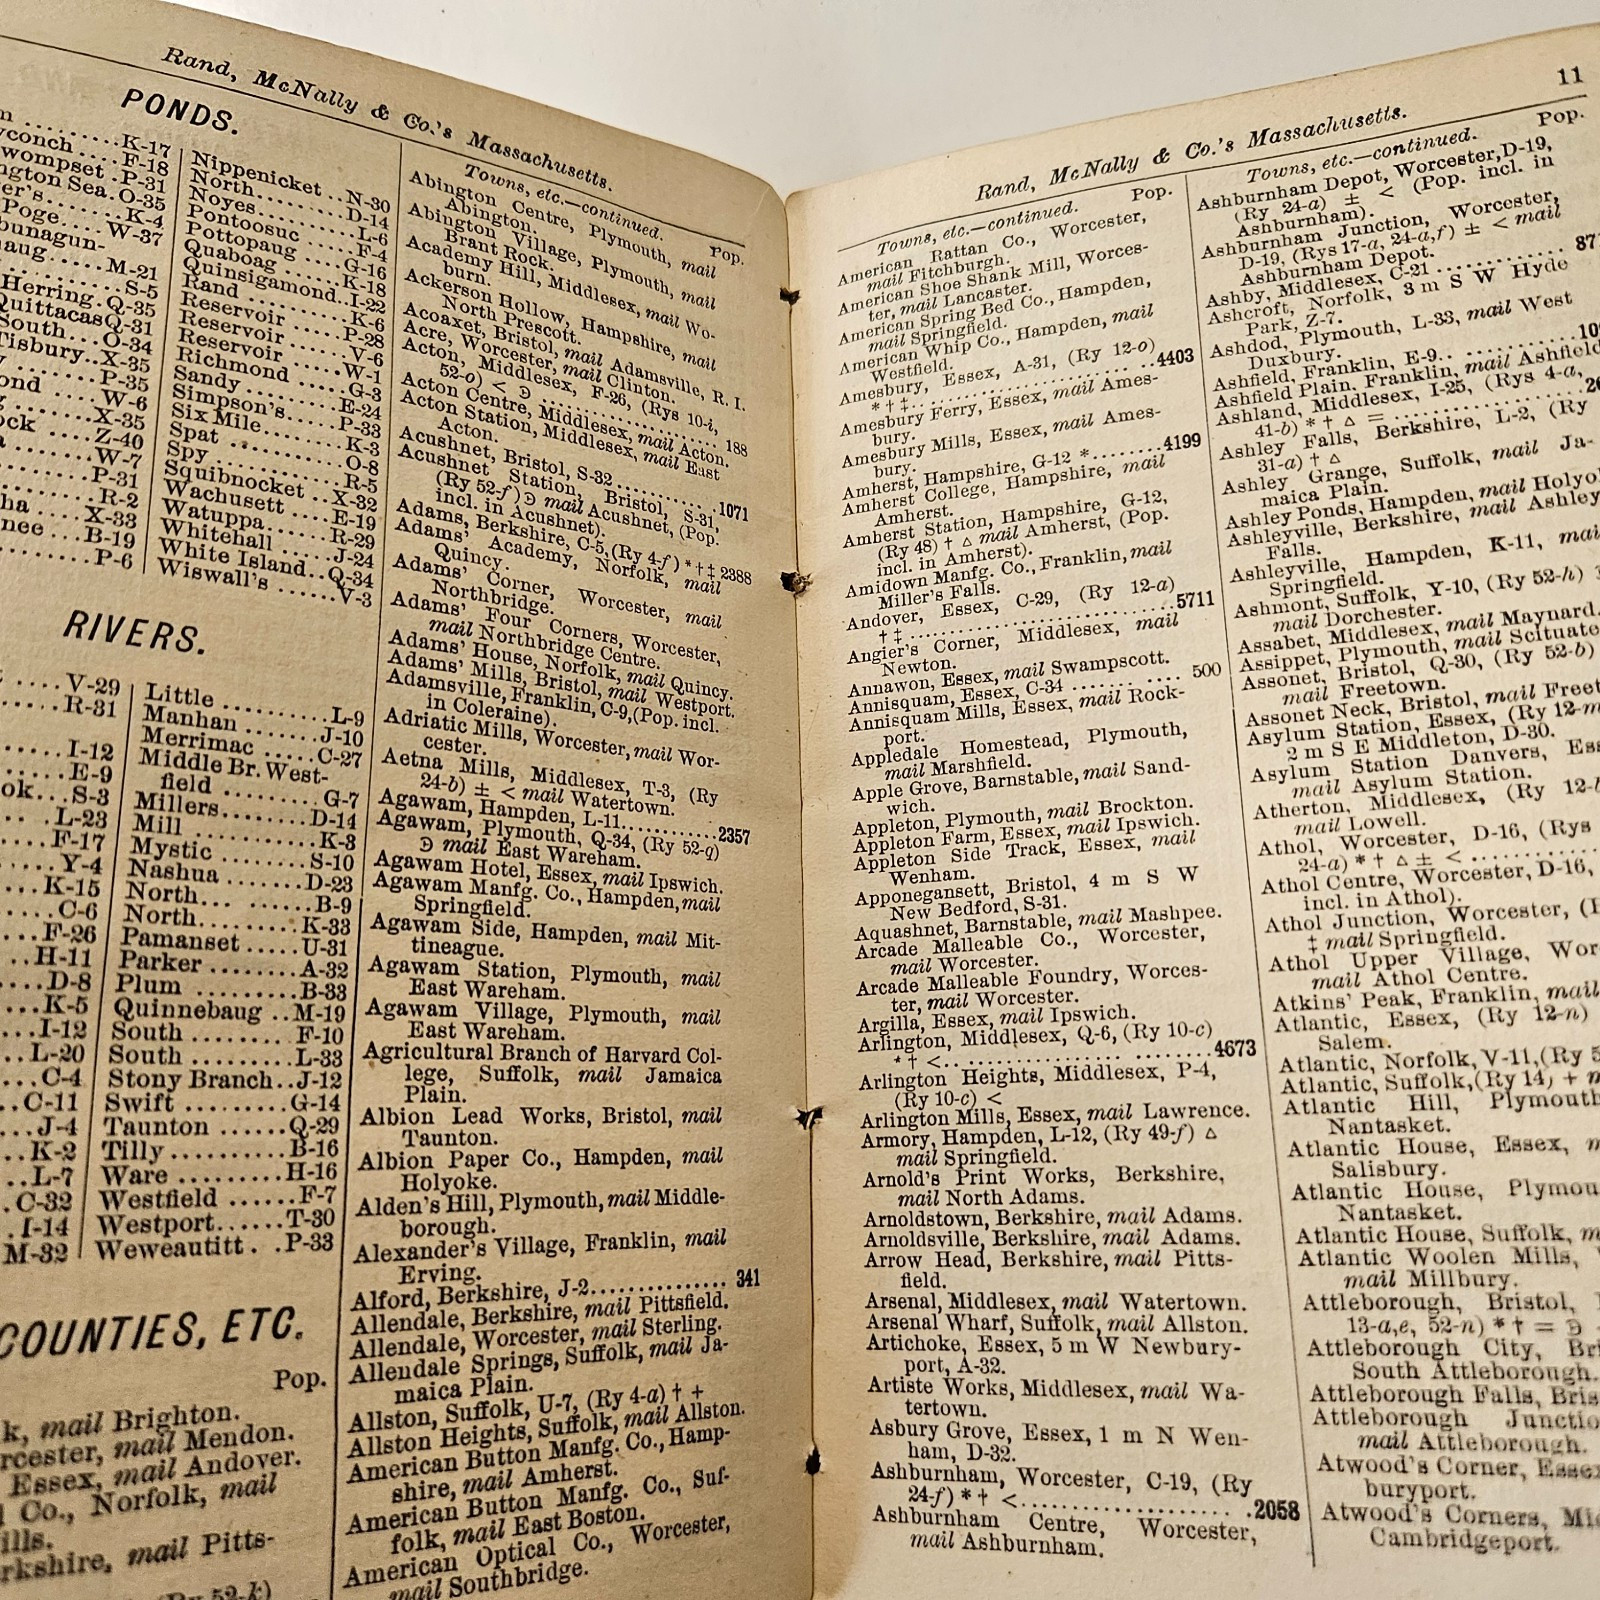 Rand, McNally & Co.'s Massachusetts.
PONDS.
K-17
F-18
P-31
Sea. O-35
K-4
Poge.... W-37
M-21
S-5
Herring. Q-35
Quittacas Q-31
South....O-34
Tisbury..X-35
P-35
W-6
X-35
Z-40
W-7
P-31
R-2
X-33
B-19
P-6
Nippenicket..N-30
North..........D-14
Noyes..........L-6
Pontoosuc .....F-4
Pottopaug ....G-16
Quaboag ......K-18
Quinsigamond..I-22
Rand ..........K-6
Reservoir ......P-28
Reservoir ......V-6
Reservoir ......W-1
Richmond .....G-3
Sandy .........E-24
Simpson's......P-33
Six Mile........K-3
Spat ..........O-8
Spy ...........R-5
Squibnocket ..X-32
Wachusett ....E-19
Watuppa......R-29
Whitehall .....J-24
White Island..Q-34
Wiswall's ......V-3
RIVERS.
V-29
R-31
I-12
E-9
S-3
L-23
F-17
Y-4
K-15
C-6
F-26
H-11
D-8
K-5
I-12
L-20
C-4
C-11
J-4
K-2
L-7
C-32
I-14
M-32
Little ..........L-9
Manhan ........J-10
Merrimac ......C-27
Middle Br. West-
field ..........G-7
Millers..........D-14
Mill ...........K-3
Mystic .........S-10
Nashua ........D-23
North... .......B-9
North..........K-33
Pamanset .....U-31
Parker .........A-32
Plum ..........B-33
Quinnebaug ..M-19
South ..........F-10
South ..........L-33
Stony Branch..J-12
Swift ..........G-14
Taunton ......Q-29
Tilly...........B-16
Ware ..........H-16
Westfield ......F-7
Westport......T-30
Weweautitt. . .P-33
COUNTIES, ETC.
Pop.
mail Brighton.
mail Mendon.
Essex, mail Andover.
Co., Norfolk, mail
mail Pitts-
(Ry 52-k)
Towns, etc.—continued.
Pop.
Abington Centre, Plymouth, mail
Abington.
Abington Village, Plymouth, mail
Brant Rock.
Academy Hill, Middlesex, mail Wo-
burn.
Ackerson Hollow, Hampshire, mail
North Prescott.
Acoaxet, Bristol, mail Adamsville, R. I.
Acre, Worcester, mail Clinton.
Acton, Middlesex, F-26, (Rys 10-i,
52-o) < Ͽ .................... 188
Acton Centre, Middlesex, mail Acton.
Acton Station, Middlesex, mail East
Acton.
Acushnet, Bristol, S-32............1071
Acushnet Station, Bristol, S-31,
(Ry 52-f) Ͽ mail Acushnet, (Pop.
incl. in Acushnet).
Adams, Berkshire, C-5, (Ry 4-f) * † ‡ 2388
Adams' Academy, Norfolk, mail
Quincy.
Adams' Corner, Worcester, mail
Northbridge.
Adams' Four Corners, Worcester,
mail Northbridge Centre.
Adams' House, Norfolk, mail Quincy.
Adams' Mills, Bristol, mail Westport.
Adamsville, Franklin, C-9, (Pop. incl.
in Coleraine).
Adriatic Mills, Worcester, mail Wor-
cester.
Aetna Mills, Middlesex, T-3, (Ry
24-b) ± < mail Watertown.
Agawam, Hampden, L-11............2357
Agawam, Plymouth, Q-34, (Ry 52-q)
Ͽ mail East Wareham.
Agawam Hotel, Essex, mail Ipswich.
Agawam Manfg. Co., Hampden, mail
Springfield.
Agawam Side, Hampden, mail Mit-
tineague.
Agawam Station, Plymouth, mail
East Wareham.
Agawam Village, Plymouth, mail
East Wareham.
Agricultural Branch of Harvard Col-
lege, Suffolk, mail Jamaica
Plain.
Albion Lead Works, Bristol, mail
Taunton.
Albion Paper Co., Hampden, mail
Holyoke.
Alden's Hill, Plymouth, mail Middle-
borough.
Alexander's Village, Franklin, mail
Erving.
Alford, Berkshire, J-2.............. 341
Allendale, Berkshire, mail Pittsfield.
Allendale, Worcester, mail Sterling.
Allendale Springs, Suffolk, mail Ja-
maica Plain.
Allston, Suffolk, U-7, (Ry 4-a) † +
Allston Heights, Suffolk, mail Allston.
American Button Manfg. Co., Hamp-
shire, mail Amherst.
American Button Manfg. Co., Suf-
folk, mail East Boston.
American Optical Co., Worcester,
mail Southbridge.
Rand, McNally & Co.'s Massachusetts.
11
Towns, etc.—continued.
Pop.
American Rattan Co., Worcester,
mail Fitchburgh.
American Shoe Shank Mill, Worces-
ter, mail Lancaster.
American Spring Bed Co., Hampden,
mail Springfield.
American Whip Co., Hampden, mail
Westfield.
Amesbury, Essex, A-31, (Ry 12-o)
* † ‡.......................4403
Amesbury Ferry, Essex, mail Ames-
bury.
Amesbury Mills, Essex, mail Ames-
bury.
Amherst, Hampshire, G-12 *........4199
Amherst College, Hampshire, mail
Amherst.
Amherst Station, Hampshire, G-12,
(Ry 48) † △ mail Amherst, (Pop.
incl. in Amherst).
Amidown Manfg. Co., Franklin, mail
Miller's Falls.
Andover, Essex, C-29, (Ry 12-a)
† ‡.............................5711
Angier's Corner, Middlesex, mail
Newton.
Annawon, Essex, mail Swampscott.
Annisquam, Essex, C-34 ........... 500
Annisquam Mills, Essex, mail Rock-
port.
Appledale Homestead, Plymouth,
mail Marshfield.
Apple Grove, Barnstable, mail Sand-
wich.
Appleton, Plymouth, mail Brockton.
Appleton Farm, Essex, mail Ipswich.
Appleton Side Track, Essex, mail
Wenham.
Apponegansett, Bristol, 4 m S W
New Bedford, S-31.
Aquashnet, Barnstable, mail Mashpee.
Arcade Malleable Co., Worcester,
mail Worcester.
Arcade Malleable Foundry, Worces-
ter, mail Worcester.
Argilla, Essex, mail Ipswich.
Arlington, Middlesex, Q-6, (Ry 10-c)
* † <............................4673
Arlington Heights, Middlesex, P-4,
(Ry 10-c) <
Arlington Mills, Essex, mail Lawrence.
Armory, Hampden, L-12, (Ry 49-f) △
mail Springfield.
Arnold's Print Works, Berkshire,
mail North Adams.
Arnoldstown, Berkshire, mail Adams.
Arnoldsville, Berkshire, mail Adams.
Arrow Head, Berkshire, mail Pitts-
field.
Arsenal, Middlesex, mail Watertown.
Arsenal Wharf, Suffolk, mail Allston.
Artichoke, Essex, 5 m W Newbury-
port, A-32.
Artiste Works, Middlesex, mail Wa-
tertown.
Asbury Grove, Essex, 1 m N Wen-
ham, D-32.
Ashburnham, Worcester, C-19, (Ry
24-f) * † <.......................2058
Ashburnham Centre, Worcester,
mail Ashburnham.
Towns, etc.—continued.
Pop.
Ashburnham Depot, Worcester, D-19,
(Ry 24-a) ± < (Pop. incl. in
Ashburnham).
Ashburnham Junction, Worcester,
D-19, (Rys 17-a, 24-a,f) ± < mail
Ashburnham Depot.
Ashby, Middlesex, C-21 ............
Ashcroft, Norfolk, 3 m S W Hyde
Park, Z-7.
Ashdod, Plymouth, L-33, mail West
Duxbury.
Ashfield, Franklin, E-9.. ..........
Ashfield Plain, Franklin, mail Ashfield
Ashland, Middlesex, I-25, (Rys 4-a,
41-b) * † △ = ..................
Ashley Falls, Berkshire, L-2, (Ry
31-a) † △
Ashley Grange, Suffolk, mail Ja-
maica Plain.
Ashley Ponds, Hampden, mail
Ashleyville, Berkshire, mail Ashley
Falls.
Ashleyville, Hampden, K-11, mail
Springfield.
Ashmont, Suffolk, Y-10, (Ry 52-h)
mail Dorchester.
Assabet, Middlesex, mail Maynard.
Assippet, Plymouth, mail Scituate
Assonet, Bristol, Q-30, (Ry 52-b)
mail Freetown.
Assonet Neck, Bristol, mail
Asylum Station, Essex, (Ry 12-m
2 m S E Middleton, D-30.
Asylum Station Danvers,
mail Asylum Station.
Atherton, Middlesex, (Ry
mail Lowell.
Athol, Worcester, D-16, (Rys
24-a) * † △ ± < .............
Athol Centre, Worcester, D-16,
incl. in Athol).
Athol Junction, Worcester,
‡ mail Springfield.
Athol Upper Village,
mail Athol Centre.
Atkins' Peak, Franklin, mail
Atlantic, Essex, (Ry 12-n)
Salem.
Atlantic, Norfolk, V-11, (Ry
Atlantic, Suffolk, (Ry 14) +
Atlantic Hill, Plymouth
Nantasket.
Atlantic House, Essex,
Salisbury.
Atlantic House,
Nantasket.
Atlantic House, Suffolk,
Atlantic Woolen Mills,
mail Millbury.
Attleborough, Bristol,
13-a,e, 52-n) * † = Ͽ
Attleborough City,
South Attleborough.
Attleborough Falls,
Attleborough
mail Attleborough.
Atwood's Corner, Essex
buryport.
Atwood's Corners,
Cambridgeport.